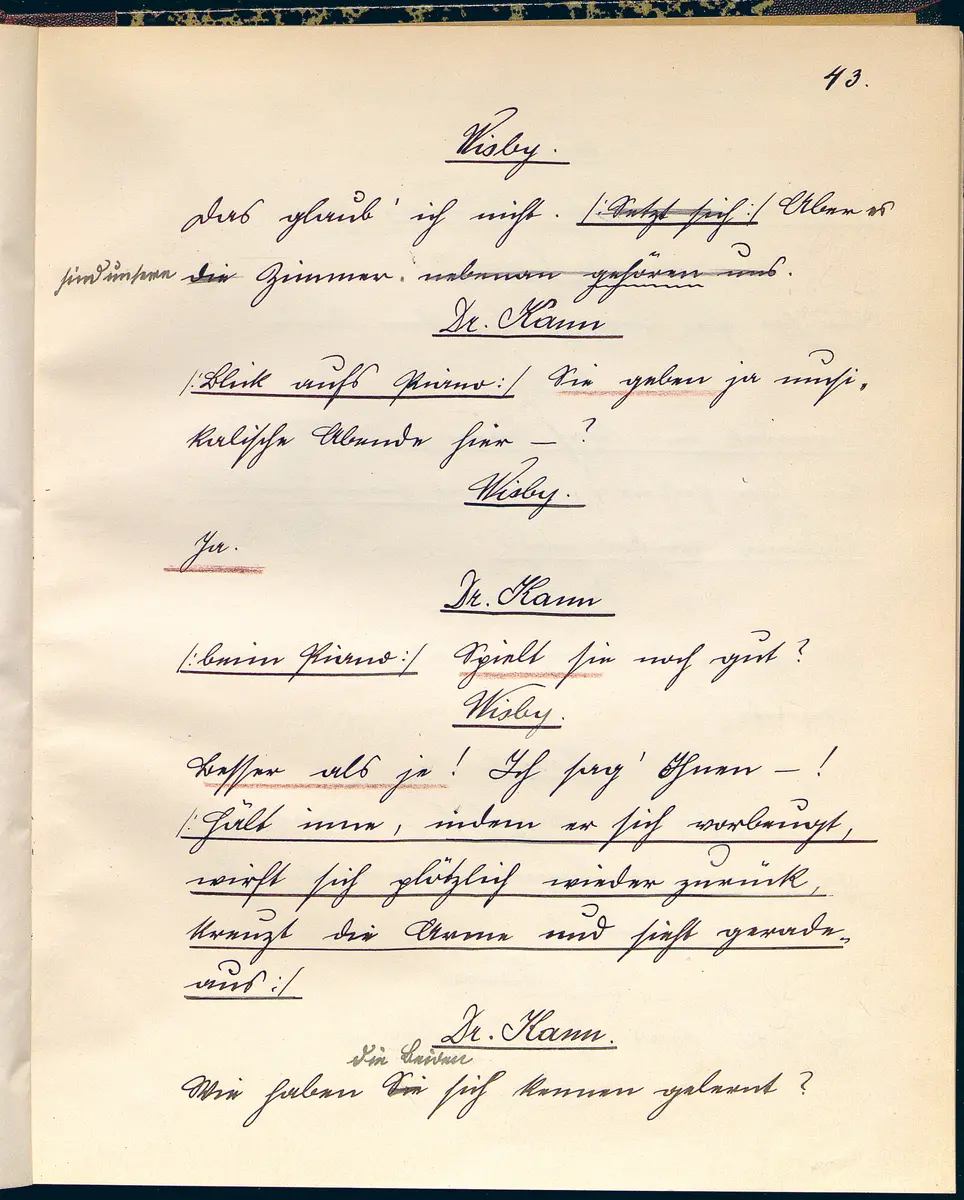 43.
Wisby.
Das glaub' ich nicht. /: Setzt sich :/ Aber es
sind unsere die Zimmer nebenan gehören uns.
Dr. Kann
/: Blick aufs Piano :/ Sie geben ja musi-
kalische Abende hier — ?
Wisby.
Ja.
Dr. Kann
/: beim Piano :/ Spielt sie noch gut?
Wisby.
Besser als je! Ich sag' Ihnen — !
/: Hält inne, indem er sich vorbeugt,
wirft sich plötzlich wieder zurück,
kreuzt die Arme und sieht gerade-
aus :/
Dr. Kann.
die Beiden
Wie haben Sie sich kennen gelernt?